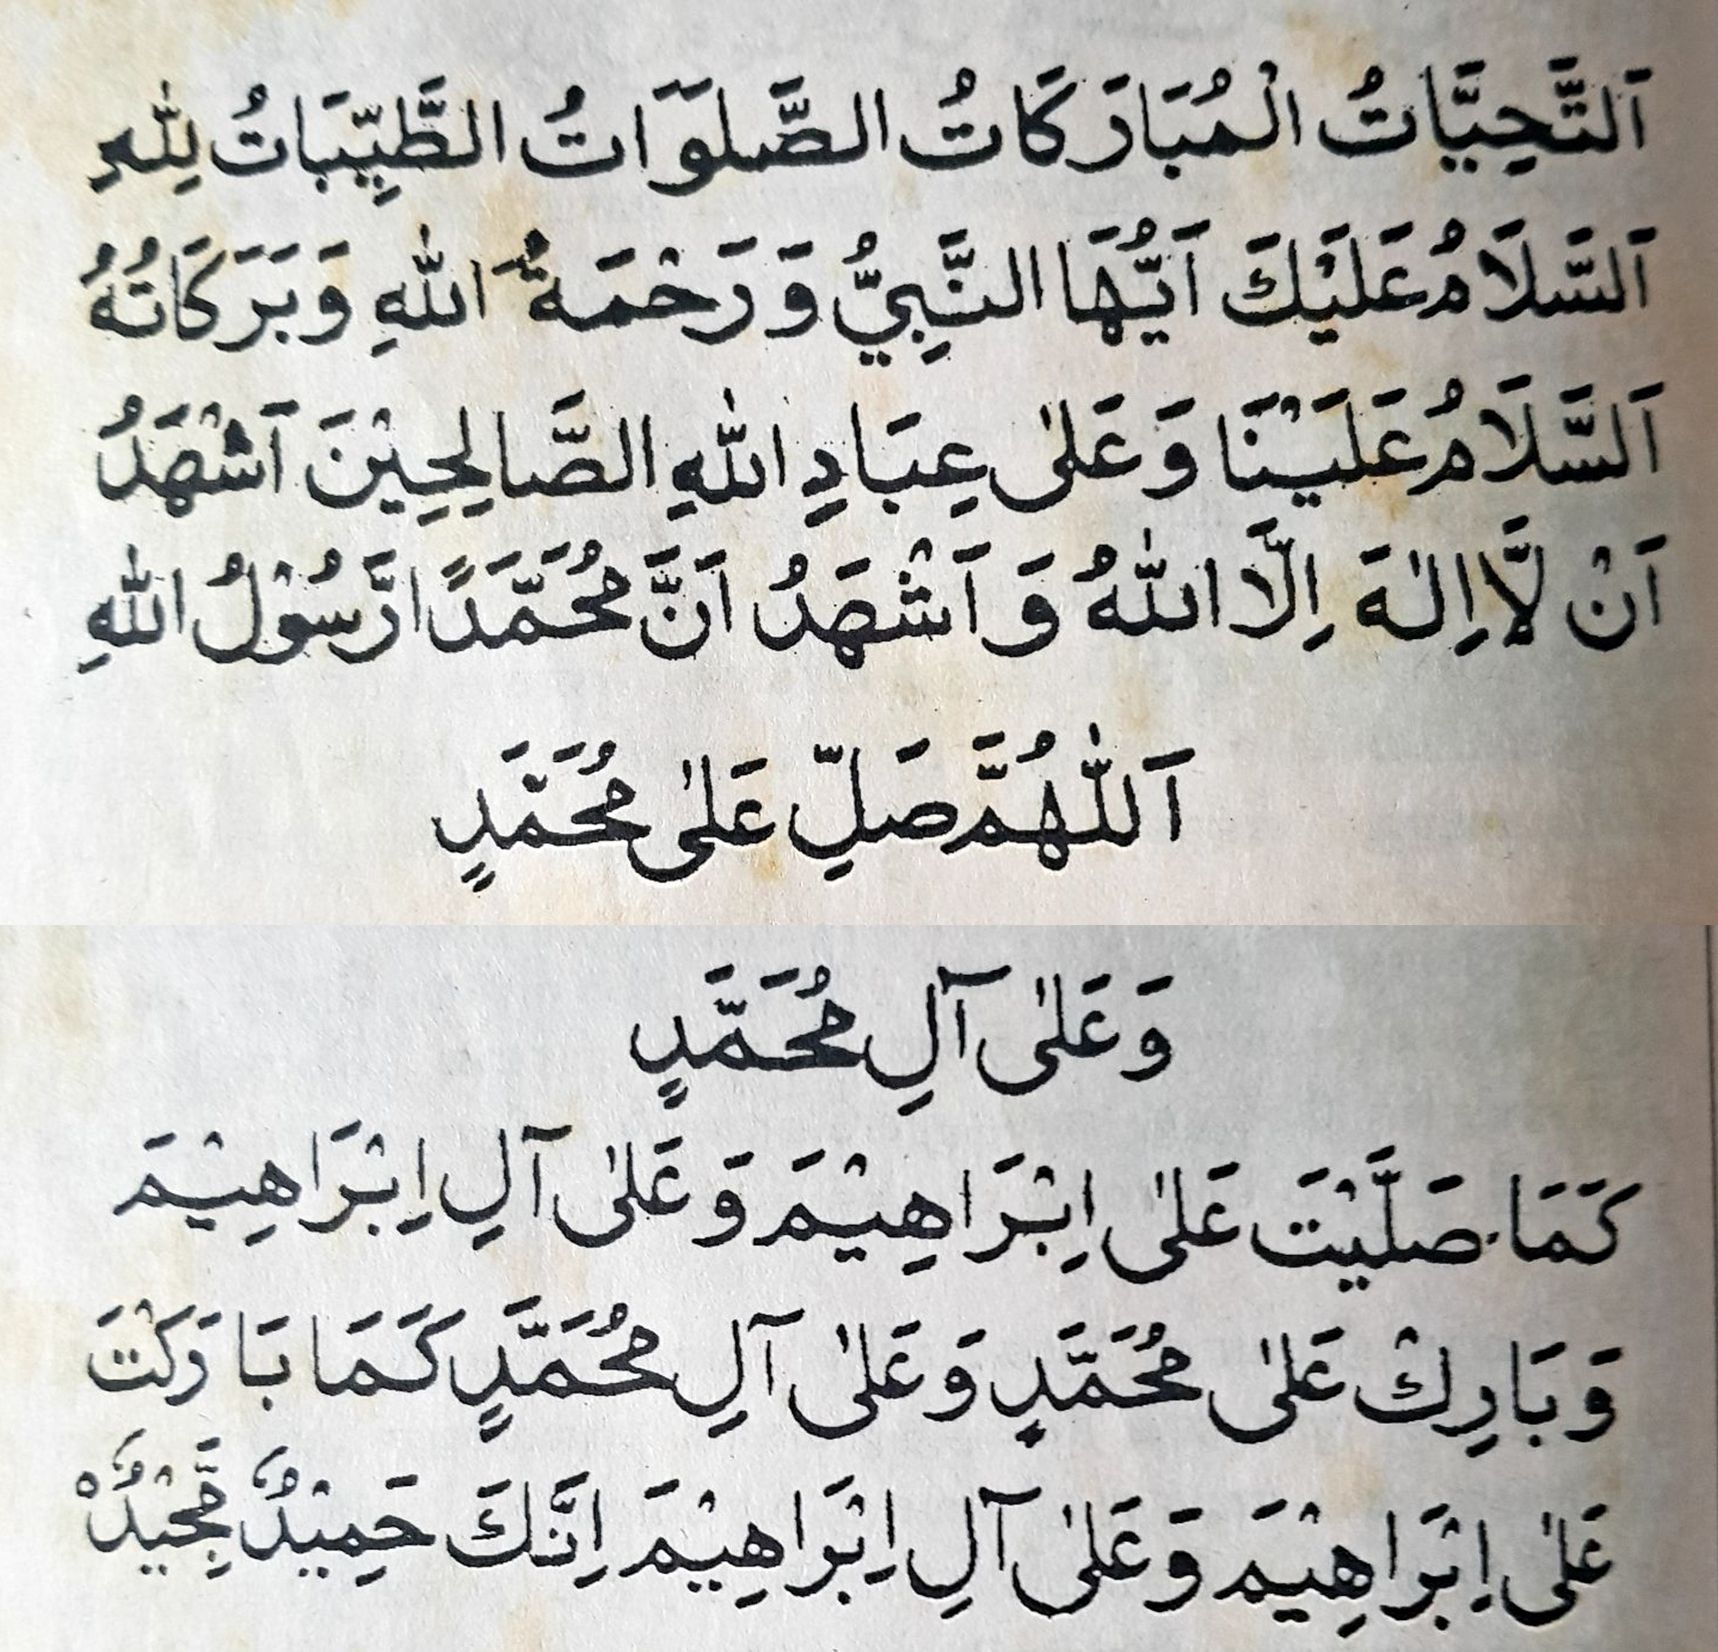 اَلتَّحِيَّاتُ الْمُبَارَكَاتُ الصَّلَوَاتُ الطَّيِّبَاتُ لِلّٰهِ
اَلسَّلَامُ عَلَيْكَ اَيُّهَا النَّبِيُّ وَرَحْمَةُ اللّٰهِ وَبَرَكَاتُهُ
اَلسَّلَامُ عَلَيْنَا وَعَلٰى عِبَادِ اللّٰهِ الصَّالِحِيْنَ اَشْهَدُ
اَنْ لَّااِلٰهَ اِلَّا اللّٰهُ وَاَشْهَدُ اَنَّ مُحَمَّدًا رَّسُوْلُ اللّٰهِ
اَللّٰهُمَّ صَلِّ عَلٰى مُحَمَّدٍ
وَعَلٰى آلِ مُحَمَّدٍ
كَمَا صَلَّيْتَ عَلٰى اِبْرَاهِيْمَ وَعَلٰى آلِ اِبْرَاهِيْمَ
وَبَارِكْ عَلٰى مُحَمَّدٍ وَعَلٰى آلِ مُحَمَّدٍ كَمَا بَارَكْتَ
عَلٰى اِبْرَاهِيْمَ وَعَلٰى آلِ اِبْرَاهِيْمَ اِنَّكَ حَمِيْدٌ مَّجِيْدٌ